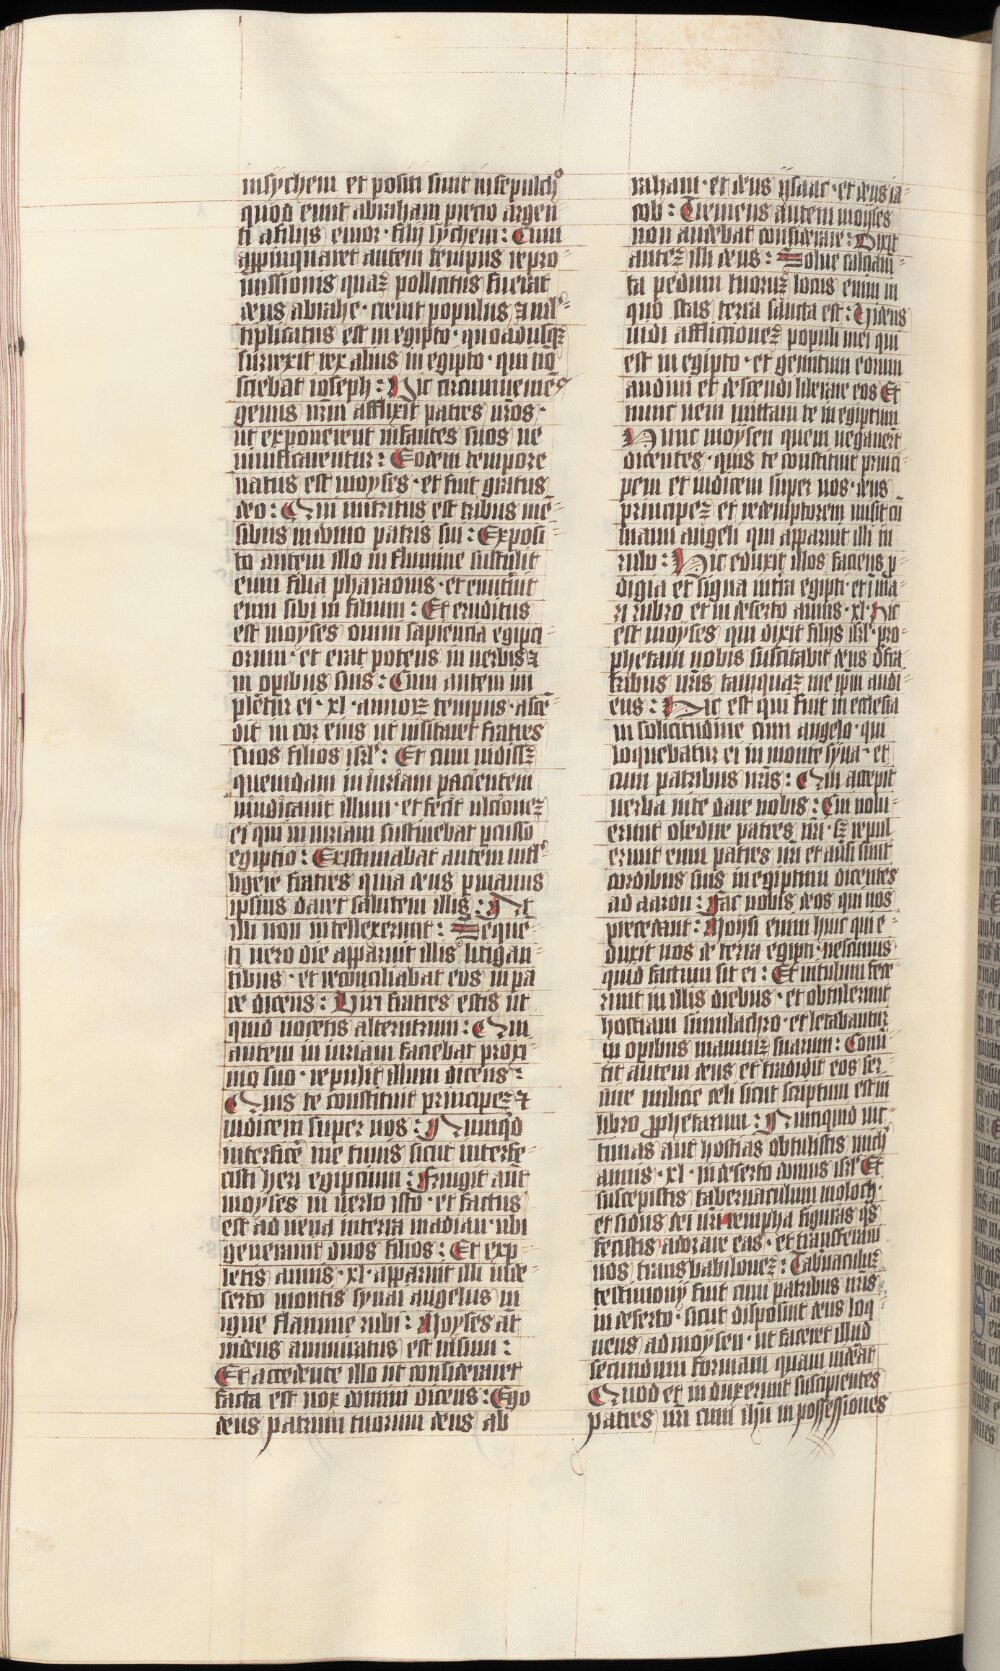 insychem et positi sunt insepulch°
quod emit abraham precio argen
ti afilijs emor · filij sychem : Cum
appinquaret autem tempus repro
missionis quaȝ pollicitus fuerat
deus abrahe · creuit populus ⁊ mul-
tiplicatus est in egipto · quoadusqȝ
surrexit rex alius in egipto · qui nō
sciebat ioseph : Hic circumueniēs
genus nr̄m afflixit patres nr̄os ·
ut exponerent infantes suos ne
uiuificarentur : Eodem tempore
natus est moyses · et fuit gratus
deo : Qui nutritus est tribus mē-
sibus in domo patris sui : Exposi-
to autem illo in flumine sustulit
eum filia pharaonis · et enutriuit
eum sibi in filium : Et eruditus
est moyses omni sapiencia egipci
orum · et erat potens in uerbis ⁊
in opibus suis : Cum autem im
pletur ei · xl · annorȝ tempus · ascē
dit in cor eius ut uisitaret fratres
suos filios isrl° : Et cum uidissȝ
quendam in iuriam pacientem
uindicauit illum · et fecit ulcionēȝ
ei qui in iuriam sustinebat pcusso
egiptio : Existimabat autem intel-
ligere fratres quia deus p manus
ipsius daret salutem illis : At
illi non intellexerunt : Seque-
ti uero die apparuit illis litigan
tibus · et reconciliabat eos in pa
ce dicens : Uiri fratres estis ut
quid nocetis alterutrum : Qui
autem in iuriam faciebat proxi
mo suo · repulit illum dicens :
Quis te constituit principeȝ ⁊
iudicem super nos : Nunqd
interficē me tu uis sicut interfe-
cisti heri egipcium : Frugit aūt
moyses in uerbo isto · et factus
est ad uena interra madian · ubi
generauit duos filios : Et exp
letis annis · xl · apparuit illi inde-
serto montis synai angelus in
igne flamme rubi : Moyses aūt
uidens ammiratus est uisum :
Et accedente illo ut consideraret
facta est uox domini dicens : Ego
deus patrum tuorum deus ab
raham · et deus ysaac · et deus ia-
cob : Tremens autem moyses
non audebat considerare : Dixit
auteȝ illi deus : Solue calciam-
ta pedum tuorȝ locus enim in
quo stas terra sancta est : Uidens
uidi afflictioneȝ populi mei qui
est in egipto · et gemitum eorum
audiui et descendi liberare eos Et
nunc ueni mittam te in egiptum
Hunc moysen quem negauert
dicentes · quis te constituit princi-
pem et iudicem super nos · deus
principeȝ et redemptorem misit cū
manu angeli qui apparuit illi in
rubo : Hic eduxit illos faciens p
digia et signa intra egipti · et i ma-
ri rubro et in deserto annis · xl · Hic
est moyses qui dixit filijs isrl° · pro-
phetam uobis suscitabit deus d' fra-
tribus ur̄is tamquaȝ me ip̄m audi-
eus : Hic est qui fuit in ecclesia
in solicitudine cum angelo · qui
loquebatur ei in monte syna · et
cum patribus nr̄is : Qui accepit
uerba uite dare nobis : Cui nolu-
erunt obedire patres nr̄i · sȝ repul
erunt eum patres nr̄i et auersi sunt
cordibus suis in egiptum dicentes
ad aaron : Fac nobis deos qui nos
precedant : Moysi enim huic qui e-
duxit nos de terra egipti · nescimus
quid factum sit ei : Et uitulum fece-
runt in illis diebus · et obtulerunt
hostiam simulachro · et letabantur
in opibus manuuȝ suarum : Conu
tit autem deus et tradidit eos ser-
uire milicie celi sicut scriptum est in
libro pphetarum : Nunquid uic-
timas aut hostias obtulistis michi
annis · xl · in deserto domus isrl° Et
suscepistis tabernaculum moloch ·
et sidus dei ur̄i rempha figuras qs
fecistis adorare eas · et transferam
uos trans babiloneȝ : Tabnaculuȝ
testimonij fuit cum patribus nr̄is
in deserto · sicut disposuit deus loq
uens ad moysen · ut faceret illud
secundum formam quam uiderat
Quod et in duxerunt suscipientes
patres nr̄i cum ihū in possessiones